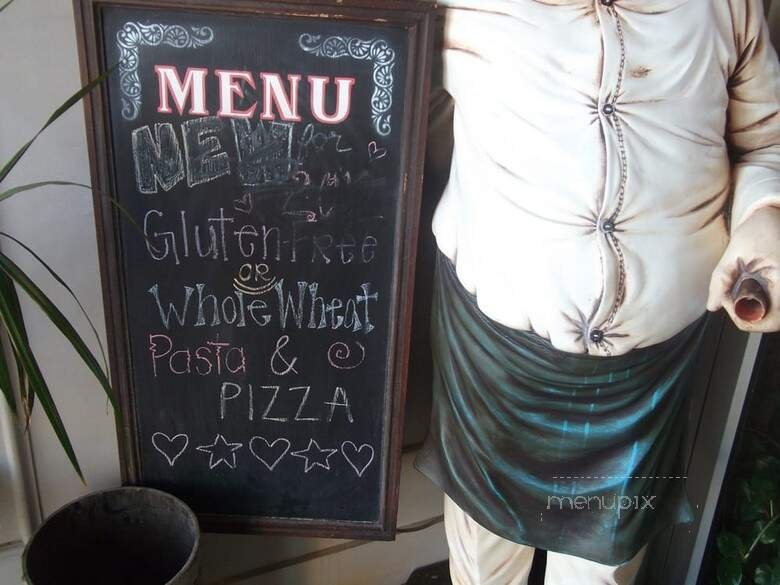 MENU
NEW for
Gluten Free
OR
Whole Wheat
Pasta &
PIZZA
menupix